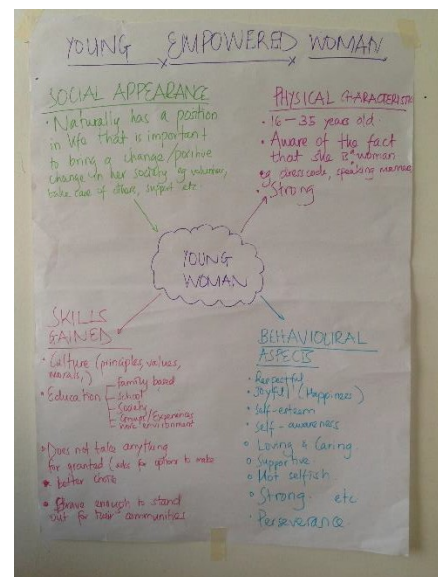 YOUNG EMPOWERED WOMAN
SOCIAL APPEARANCE
• Naturally has a position
in life that is important
to bring a change/positive
change in her society, eg volunteer,
take care of others, support etc
PHYSICAL CHARACTERISTIC
• 16 - 35 years old
• Aware of the fact
that she is a woman
eg. dress code, speaking manner
• Strong
YOUNG
WOMAN
SKILLS
GAINED
• Culture (principles, values,
morals,)
• Education - family based
- school
- Society
/Experiences
work environment
• Does not take anything
for granted (asks for options to make
better choice
• Brave enough to stand
out for their communities
BEHAVIOURAL
ASPECTS
• Respectful
• Joyful (Happiness)
• Self-esteem
• Self-awareness
• Loving & Caring
• Supportive
• Not selfish
• Strong etc
• Perseverance